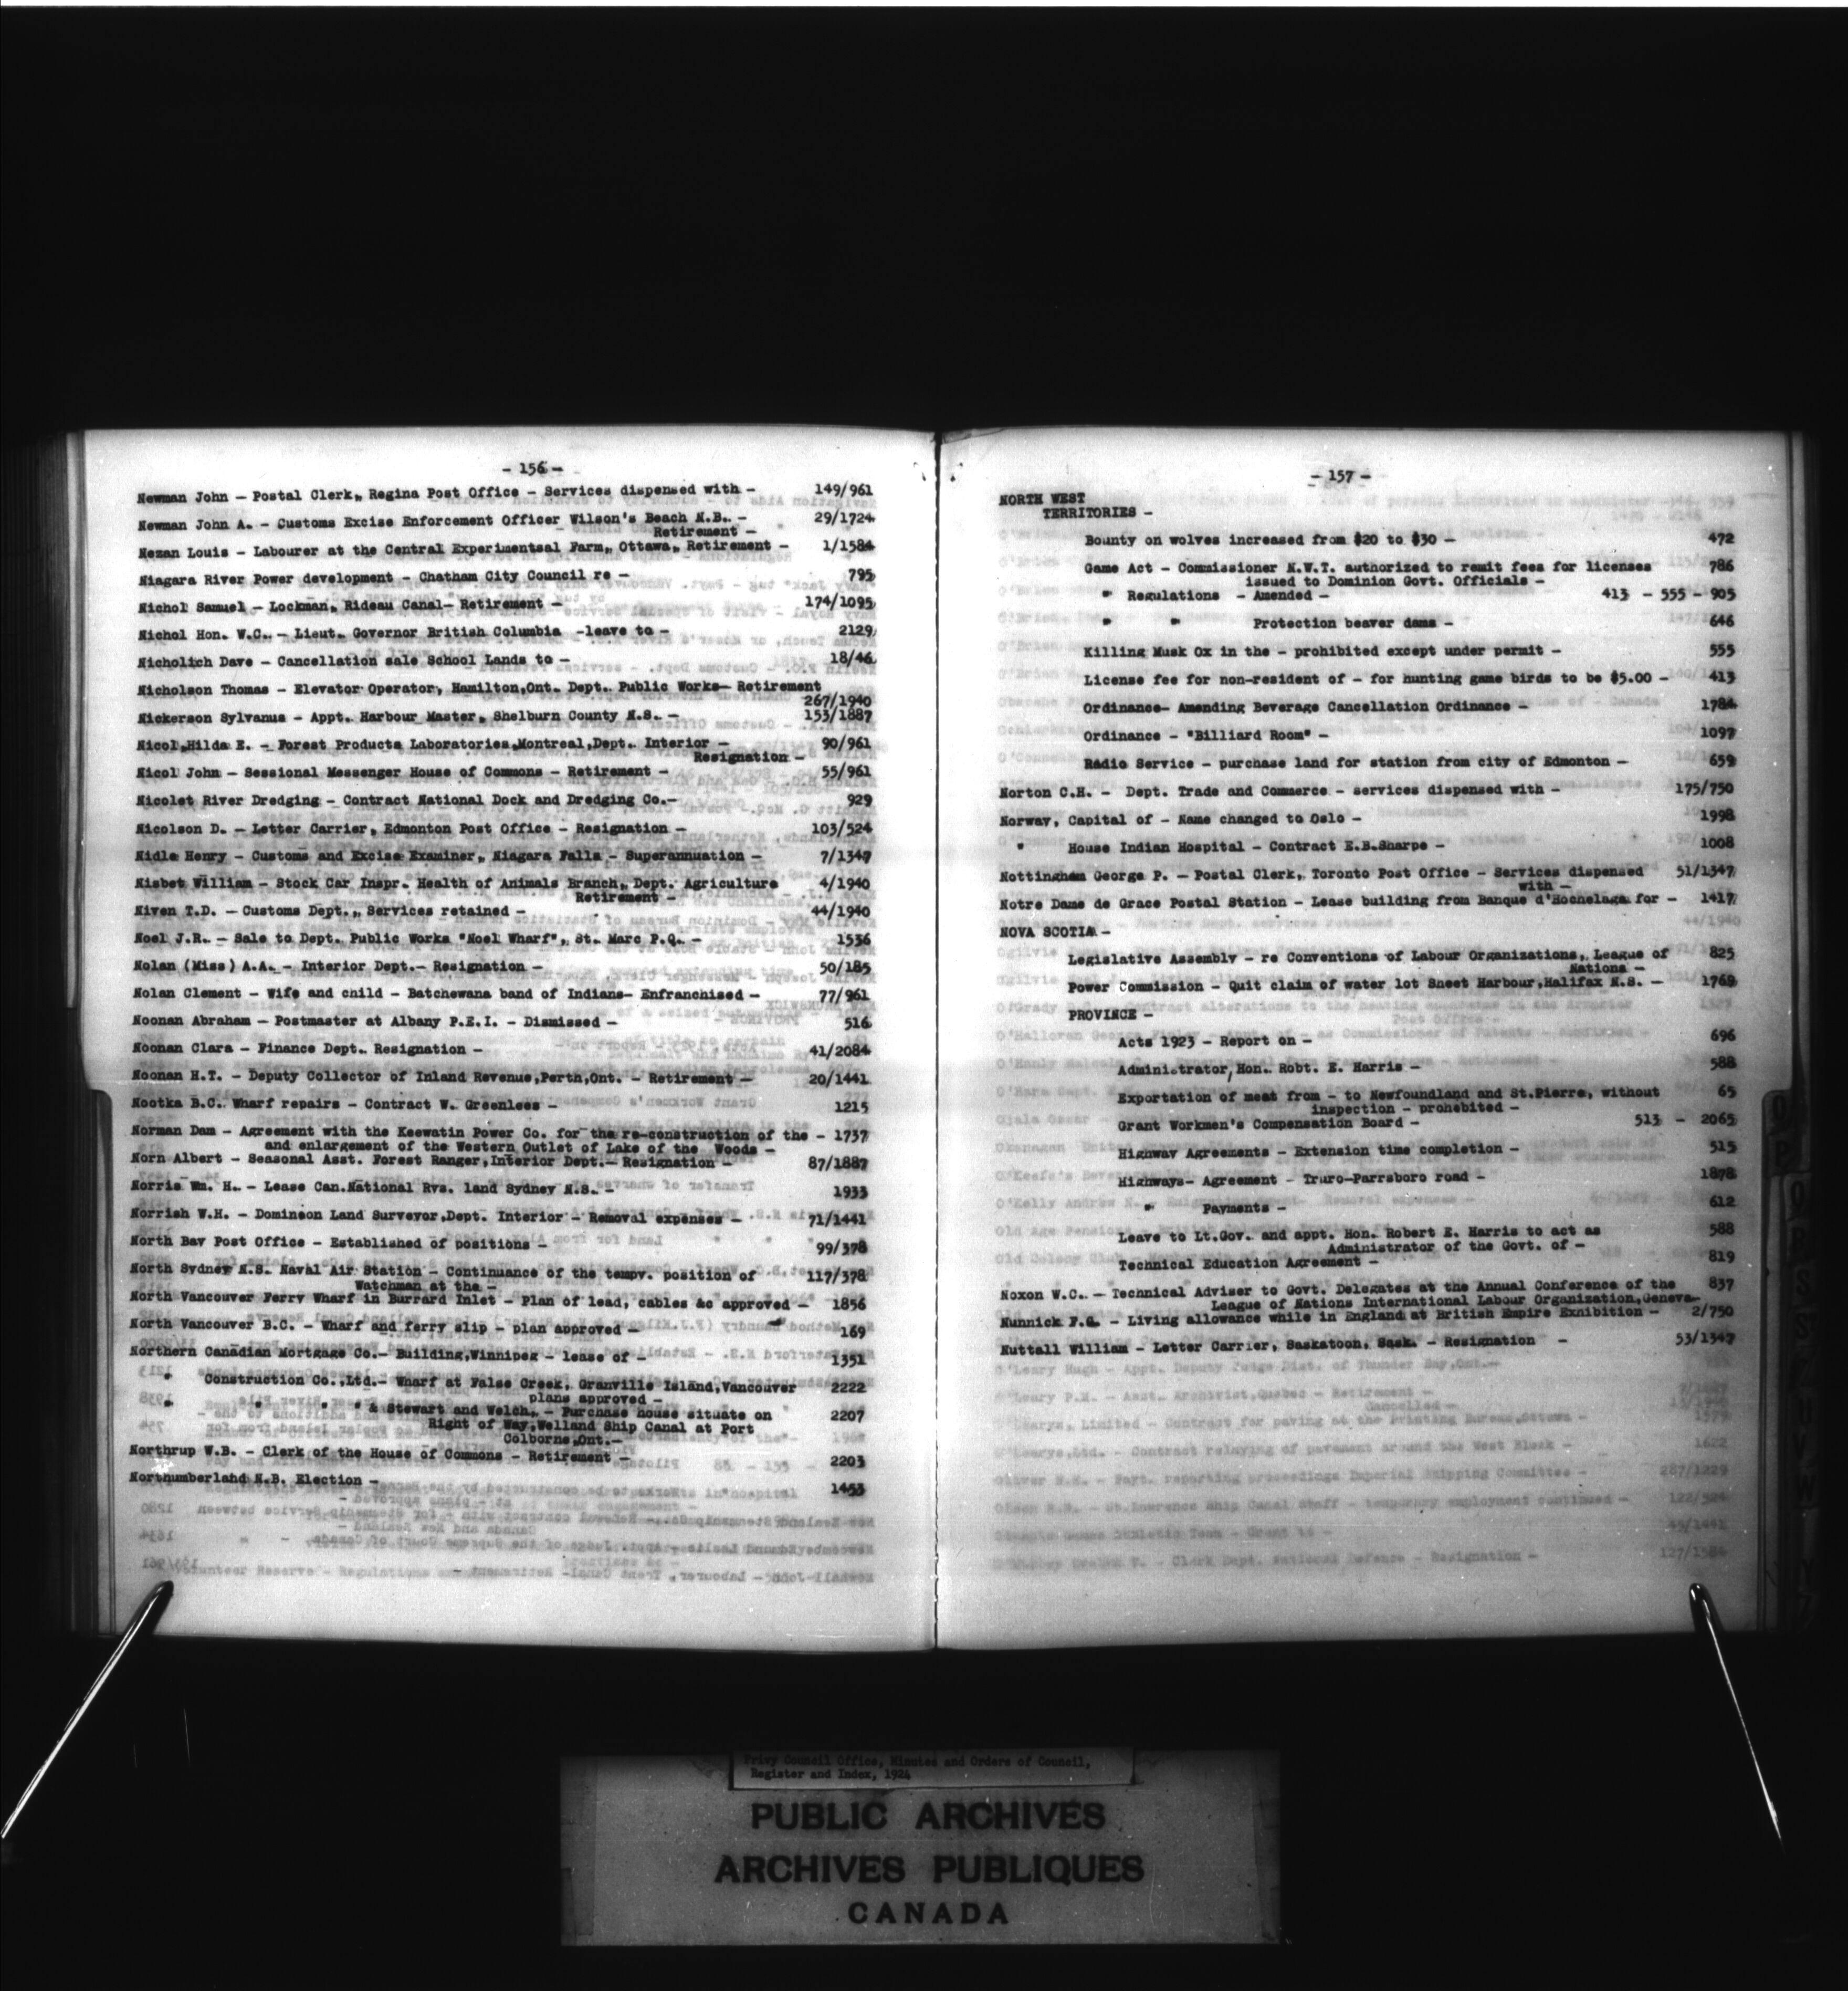 - 156 -
Newman John - Postal Clerk, Regina Post Office - Services dispensed with - 149/961
Newman John A. - Customs Excise Enforcement Officer Wilson's Beach N.B. - 29/1724
Retirement -
Nezan Louis - Labourer at the Central Experimentsal Farm, Ottawa, Retirement - 1/1584
Niagara River Power development - Chatham City Council re - 795
Nichol Samuel - Lockman, Rideau Canal- Retirement - 174/1095
Nichol Hon. W.C. - Lieut. Governor British Columbia -leave to - 2129
Nicholich Dave - Cancellation sale School Lands to - 18/46
Nicholson Thomas - Elevator Operator, Hamilton,Ont. Dept. Public Works- Retirement
267/1940
Nickerson Sylvanus - Appt. Harbour Master, Shelburn County N.S. - 153/1887
Nicol,Hilda E. - Forest Products Laboratories,Montreal,Dept. Interior - 90/961
Resignation -
Nicol John - Sessional Messenger House of Commons - Retirement - 55/961
Nicolet River Dredging - Contract National Dock and Dredging Co.- 929
Nicolson D. - Letter Carrier, Edmonton Post Office - Resignation - 103/524
Nidle Henry - Customs and Excise Examiner, Niagara Falls - Superannuation - 7/1347
Nisbet William - Stock Car Inspr. Health of Animals Branch, Dept. Agriculture 4/1940
Retirement -
Niven T.D. - Customs Dept., Services retained - 44/1940
Noel J.R. - Sale to Dept. Public Works "Noel Wharf", St. Marc P.Q. - 1536
Nolan (Miss) A.A. - Interior Dept.- Resignation - 50/185
Nolan Clement - Wife and child - Batchewana band of Indians- Enfranchised - 77/961
Noonan Abraham - Postmaster at Albany P.E.I. - Dismissed - 516
Noonan Clara - Finance Dept. Resignation - 41/2084
Noonan H.T. - Deputy Collector of Inland Revenue,Perth,Ont. - Retirement - 20/1441
Nootka B.C. Wharf repairs - Contract W. Greenlees - 1215
Norman Dam - Agreement with the Keewatin Power Co. for the re-construction of the - 1737
and enlargement of the Western Outlet of Lake of the Woods -
Norn Albert - Seasonal Asst. Forest Ranger,Interior Dept.- Resignation - 87/1887
Norris Wm. H. - Lease Can.National Rys. land Sydney N.S. - 1933
Norrish W.H. - Dominion Land Surveyor,Dept. Interior - Removal expenses - 71/1441
North Bay Post Office - Established of positions - 99/378
North Sydney N.S. Naval Air Station - Continuance of the tempy. position of 117/378
Watchman at the -
North Vancouver Ferry Wharf in Burrard Inlet - Plan of lead, cables &c approved - 1856
North Vancouver B.C. - Wharf and ferry slip - plan approved - 169
Northern Canadian Mortgage Co.- Building,Winnipeg - lease of - 1351
" Construction Co.,Ltd.- Wharf at False Creek, Granville Island,Vancouver 2222
plans approved -
" " " " & Stewart and Welch, - Purchase house situate on 2207
Right of Way,Welland Ship Canal at Port
Colborne,Ont.-
Northrup W.B. - Clerk of the House of Commons - Retirement - 2203
Northumberland N.B. Election - 1453
- 157 -
NORTH WEST
TERRITORIES -
Bounty on wolves increased from $20 to $30 - 472
Game Act - Commissioner N.W.T. authorized to remit fees for licenses 786
issued to Dominion Govt. Officials -
" Regulations - Amended - 413 - 555 - 905
" " Protection beaver dams - 646
Killing Musk Ox in the - prohibited except under permit - 555
License fee for non-resident of - for hunting game birds to be $5.00 - 413
Ordinance- Amending Beverage Cancellation Ordinance - 1784
Ordinance - "Billiard Room" - 1097
Radio Service - purchase land for station from city of Edmonton - 659
Norton C.H. - Dept. Trade and Commerce - services dispensed with - 175/750
Norway, Capital of - Name changed to Oslo - 1998
" House Indian Hospital - Contract E.B.Sharpe - 1008
Nottingham George P. - Postal Clerk, Toronto Post Office - Services dispensed 51/1347
with -
Notre Dame de Grace Postal Station - Lease building from Banque d'Hochelaga for - 1417
NOVA SCOTIA -
Legislative Assembly - re Conventions of Labour Organizations, League of 825
Nations -
Power Commission - Quit claim of water lot Sheet Harbour,Halifax N.S. - 1769
PROVINCE -
Acts 1923 - Report on - 696
Administrator,Hon. Robt. E. Harris - 588
Exportation of meat from - to Newfoundland and St.Pierre, without 65
inspection - prohebited -
Grant Workmen's Compensation Board - 513 - 2065
Highway Agreements - Extension time completion - 515
Highways- Agreement - Truro-Parrsboro road - 1878
" Payments - 612
Leave to Lt.Gov. and appt. Hon. Robert E. Harris to act as 588
Administrator of the Govt. of -
Technical Education Agreement - 819
Noxon W.C. - Technical Adviser to Govt. Delegates at the Annual Conference of the 837
League of Nations International Labour Organization,Geneva-
Nunnick F.C. - Living allowance while in England at British Empire Exhibition - 2/750
Nuttall William - Letter Carrier, Saskatoon, Sask. - Resignation - 53/1347
Privy Council Office, Minutes and Orders of Council,
Register and Index, 1924
PUBLIC ARCHIVES
ARCHIVES PUBLIQUES
CANADA